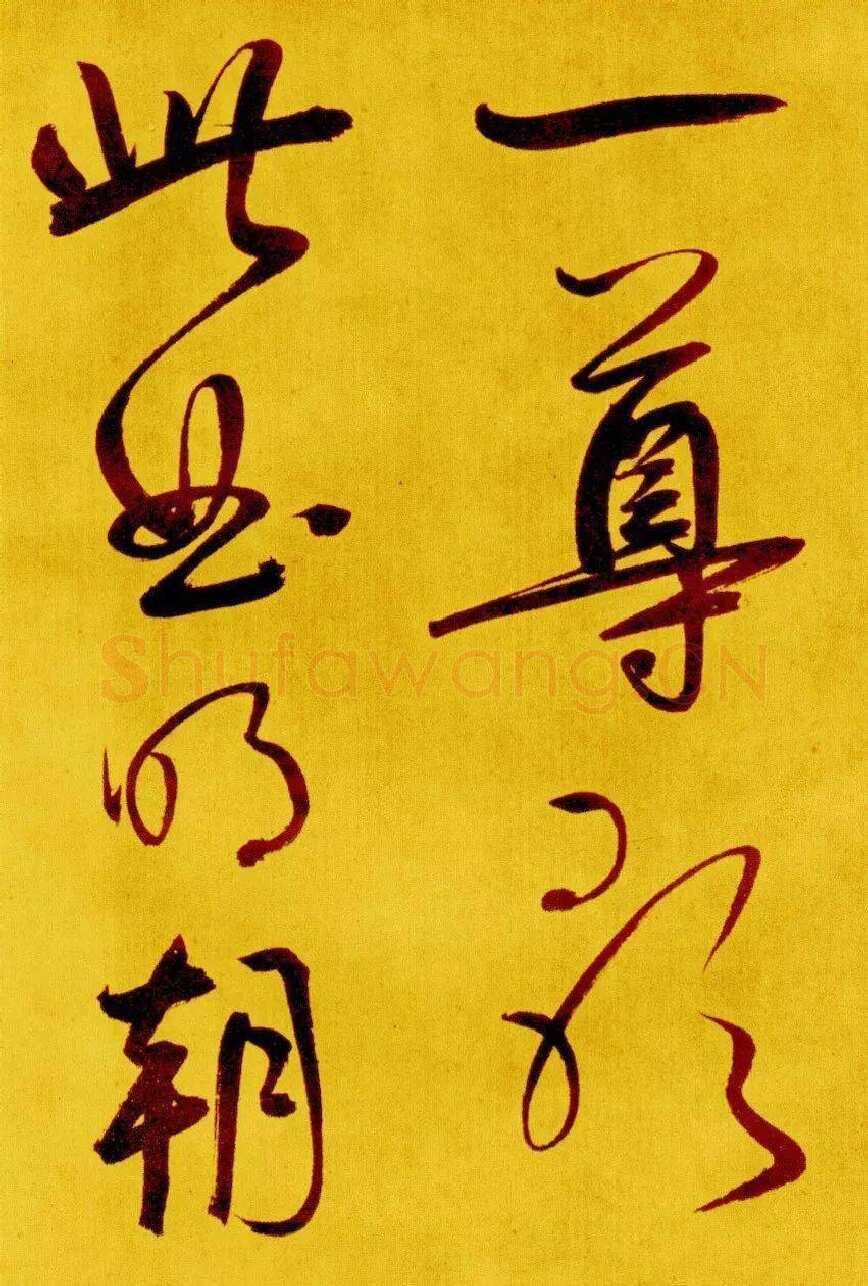 一尊歌
此曲明朝
Shufawang.CN